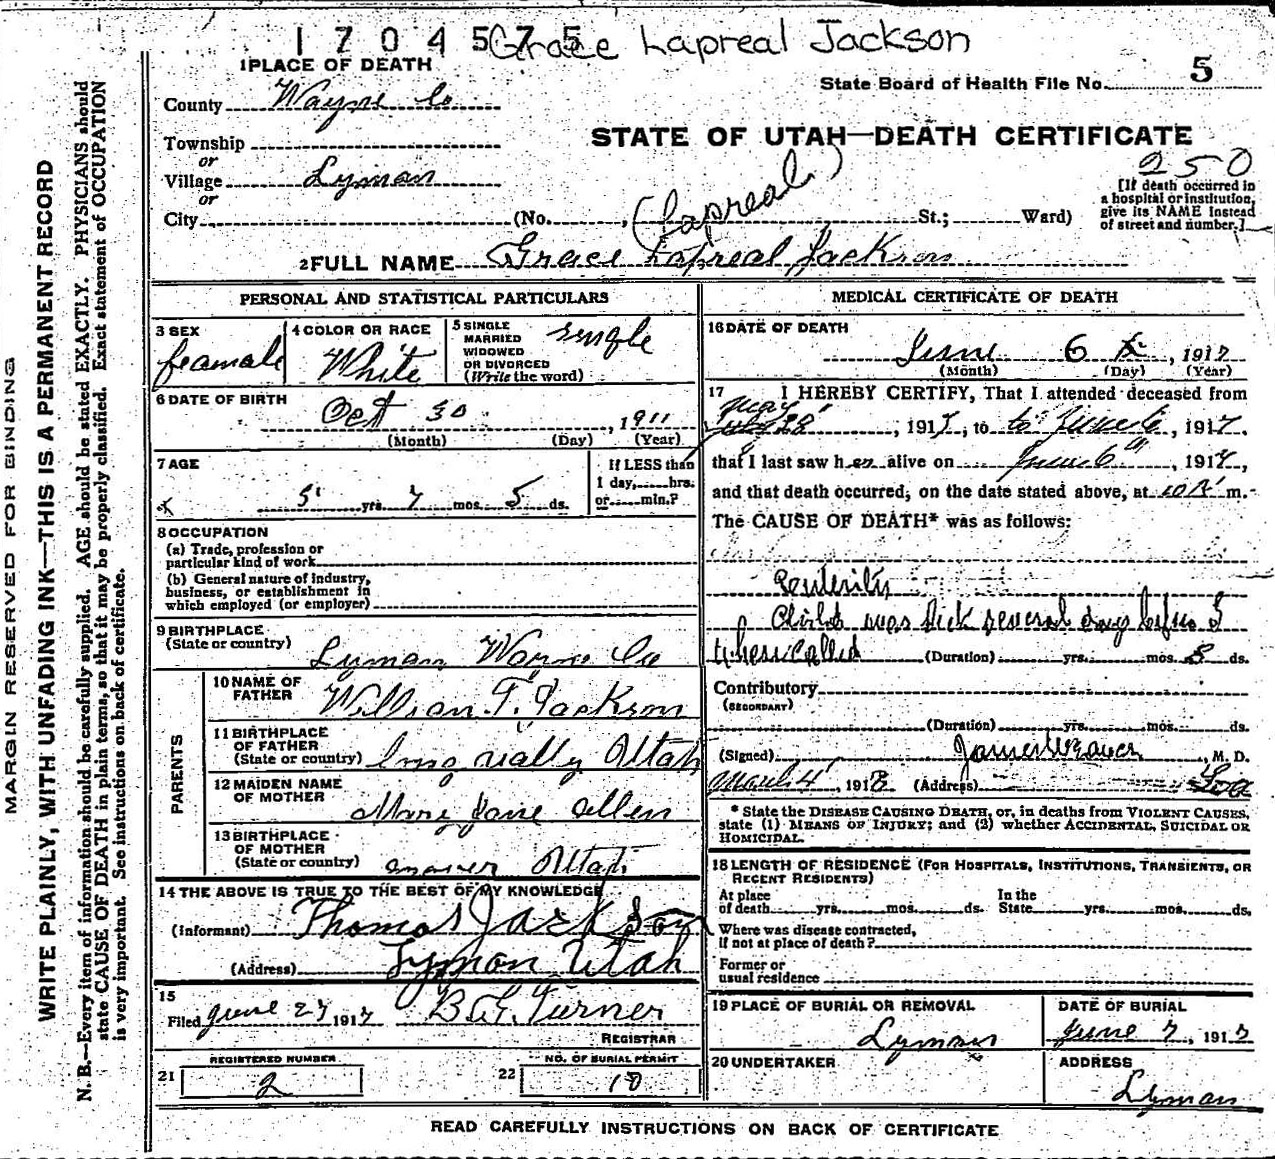 1704575 Grace Lapreal Jackson
1 PLACE OF DEATH
State Board of Health File No. 5
County Wayne Co
STATE OF UTAH—DEATH CERTIFICATE
Township
or
Village Lyman
or
City (No. , (Lapreal) St.; Ward)
250
[If death occurred in
a hospital or institution,
give its NAME instead
of street and number.]
2 FULL NAME Grace Lapreal Jackson
PERSONAL AND STATISTICAL PARTICULARS
3 SEX
feamale
4 COLOR OR RACE
White
5 SINGLE
MARRIED
WIDOWED
OR DIVORCED
(Write the word)
single
6 DATE OF BIRTH
Oct 30, 1911
(Month) (Day) (Year)
7 AGE
5 yrs. 7 mos. 5 ds.
If LESS than
1 day, hrs.
or min.?
8 OCCUPATION
(a) Trade, profession or
particular kind of work
(b) General nature of industry,
business, or establishment in
which employed (or employer)
9 BIRTHPLACE
(State or country)
Lyman Wayne Co
PARENTS
10 NAME OF
FATHER
William T. Jackson
11 BIRTHPLACE
OF FATHER
(State or country)
long vially Utah
12 MAIDEN NAME
OF MOTHER
Mary Jane Allen
13 BIRTHPLACE
OF MOTHER
(State or country)
Utah
14 THE ABOVE IS TRUE TO THE BEST OF MY KNOWLEDGE
(Informant) Thomas Jackson
(Address) Lyman Utah
15
Filed June 27 1917 Turner
REGISTRAR
REGISTERED NUMBER
21 2
NO. OF BURIAL PERMIT
22 18
MEDICAL CERTIFICATE OF DEATH
16 DATE OF DEATH
June 6, 1917
(Month) (Day) (Year)
17 I HEREBY CERTIFY, That I attended deceased from
May 28, 1917, to to June 6, 1917,
that I last saw her alive on June 6th, 1917,
and that death occurred, on the date stated above, at 10 m.
The CAUSE OF DEATH* was as follows:
Child was sick several days before I
when called (Duration) yrs. mos. 8 ds.
Contributory
(SECONDARY)
(Duration) yrs. mos. ds.
(Signed) , M. D.
March 4, 1918 (Address) Loa
* State the DISEASE CAUSING DEATH, or, in deaths from VIOLENT CAUSES,
state (1) MEANS OF INJURY; and (2) whether ACCIDENTAL, SUICIDAL OR
HOMICIDAL.
18 LENGTH OF RESIDENCE (FOR HOSPITALS, INSTITUTIONS, TRANSIENTS, OR
RECENT RESIDENTS)
At place
of death yrs. mos. ds.
In the
State yrs. mos. ds.
Where was disease contracted,
if not at place of death?
Former or
usual residence
19 PLACE OF BURIAL OR REMOVAL
Lyman
DATE OF BURIAL
June 7, 1917
20 UNDERTAKER
ADDRESS
Lyman
READ CAREFULLY INSTRUCTIONS ON BACK OF CERTIFICATE
MARGIN RESERVED FOR BINDING
WRITE PLAINLY, WITH UNFADING INK—THIS IS A PERMANENT RECORD
N. B.—Every item of information should be carefully supplied. AGE should be stated EXACTLY. PHYSICIANS should
state CAUSE OF DEATH in plain terms, so that it may be properly classified. Exact statement of OCCUPATION
is very important. See instructions on back of certificate.